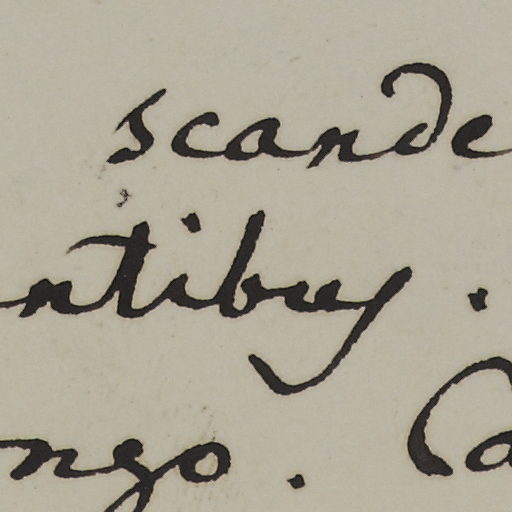 scande
ntibus.
ngo. Ca